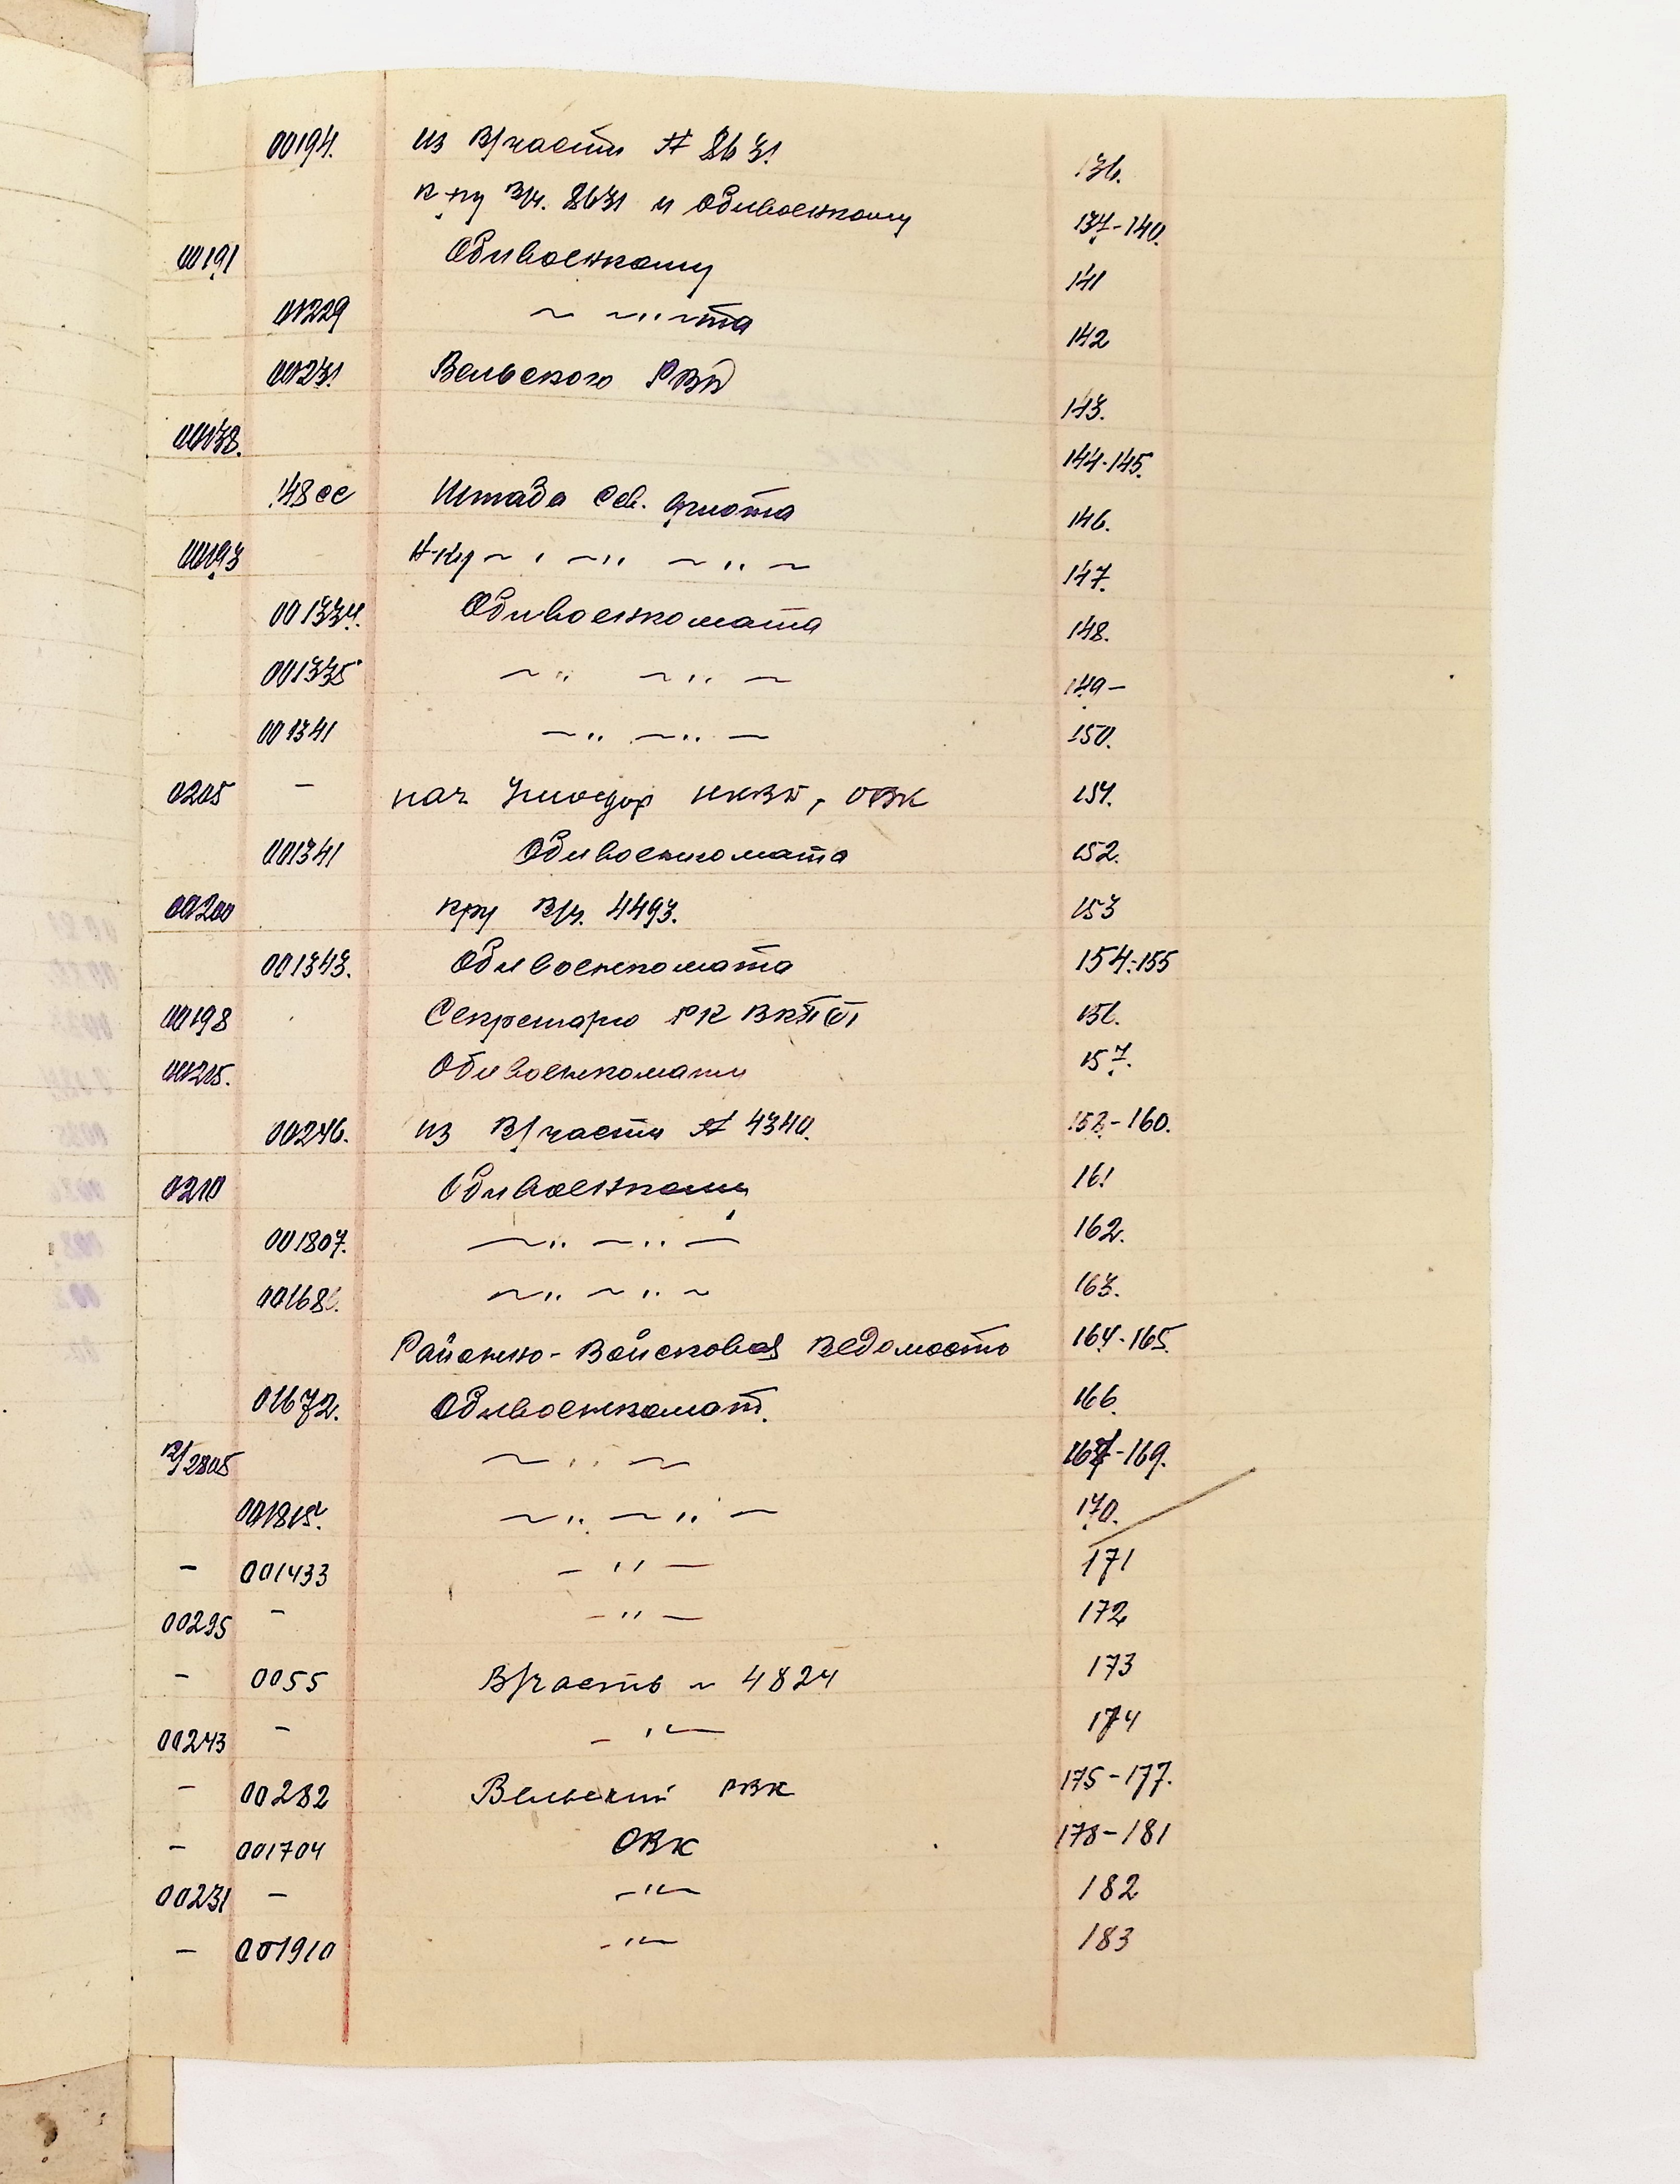 00194. из В/части № 8631 136.
к-ру В/ч. 8631 и Облвоенкому 137-140.
00191 Облвоенкому 141
01229 ~ ~ " ~та 142
00231 Вельского РВК 143.
00138. 144-145.
148сс Штаба Сев. флота 146.
00193 Н-ку ~ " ~ " ~ " ~ 147.
001334. Облвоенкомата 148.
001335 ~ " ~ " ~ 149-
001341 ~ " ~ " ~ 150.
0205 - нач НКВД, ОВК 151.
001341 Облвоенкомата 152.
00200 к-ру В/ч. 4493. 153
001343. Облвоенкомата 154-155
00198 Секретарю РК ВКП(б) 156.
00205. Облвоенкомату 157.
00246. из В/части № 4340. 158-160.
0210 Облвоенкому 161
001807. — " — " — 162.
00168 ~ " ~ " ~ 163.
Районно-Войсковая Ведомость 164-165.
01672. Облвоенкомат. 166
2805 ~ " ~ 167-169.
001815. ~ " — " — 170.
- 001433 - " — 171
00295 - - " — 172
- 0055 В/часть ~ 4824 173
00243 - - " — 174
- 00282 Вельский РВК 175-177.
- 001704 ОВК 178-181
00231 - - " — 182
- 001910 - " — 183